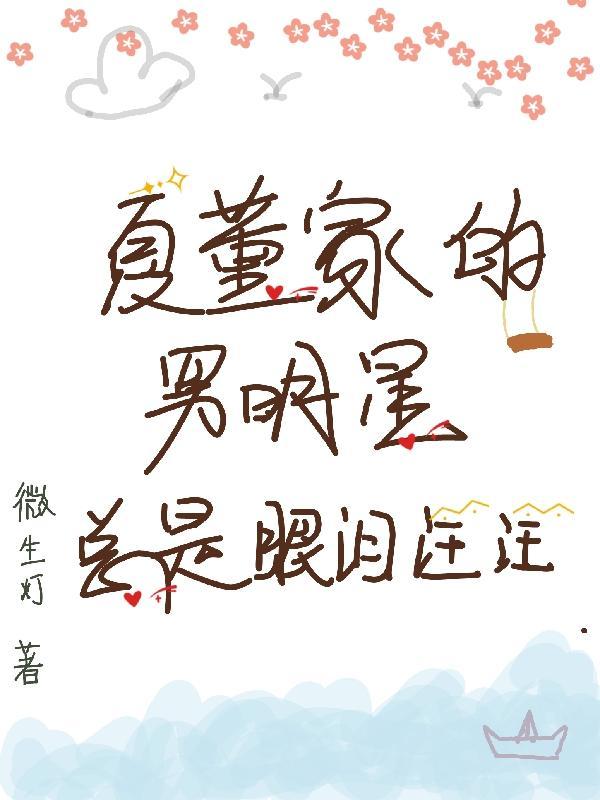 夏董家的
男明星
总是眼泪汪汪
微生灯 著